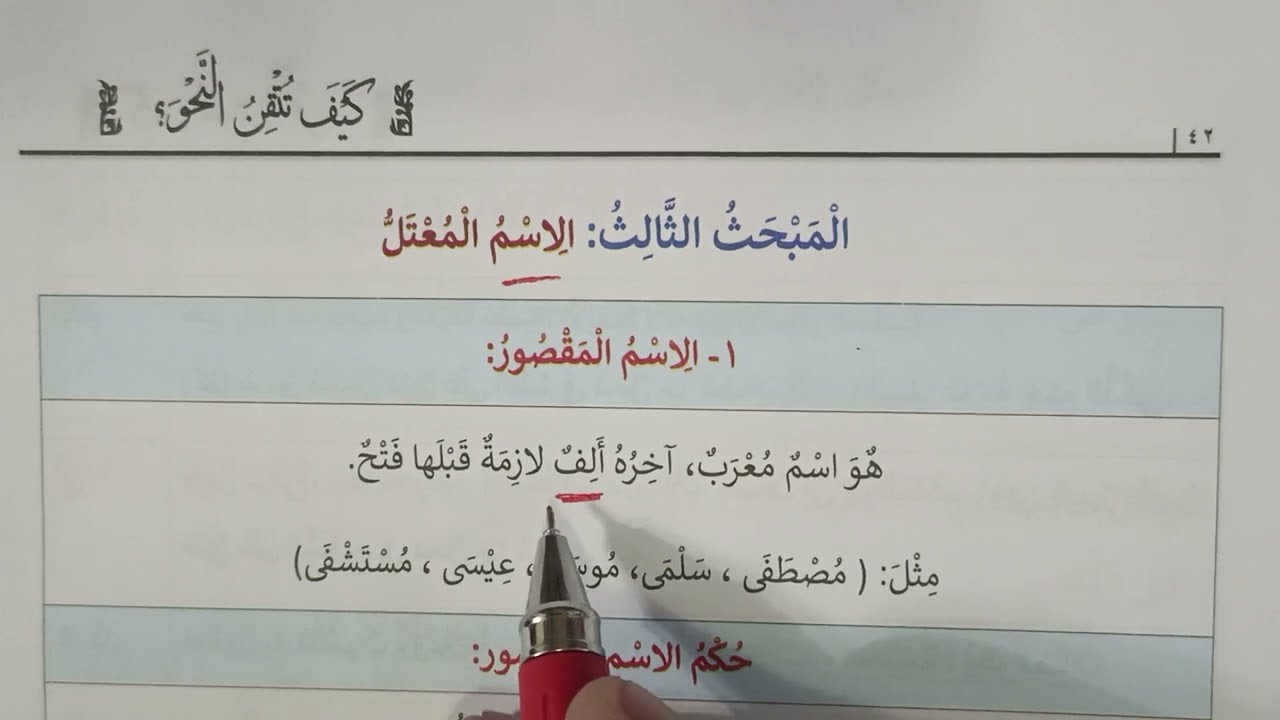 ٤٢
كَيْفَ تُتْقِنُ النَّحْوَ؟
الْمَبْحَثُ الثَّالِثُ: الِاسْمُ الْمُعْتَلُّ
١- الِاسْمُ الْمَقْصُورُ:
هُوَ اسْمٌ مُعْرَبٌ، آخِرُهُ أَلِفٌ لازِمَةٌ قَبْلَها فَتْحٌ.
مِثْلَ: ( مُصْطَفَى ، سَلْمَى، ، عِيْسَى ، مُسْتَشْفَى)
حُكْمُ الاسْمِ